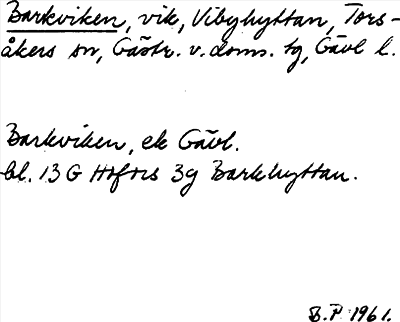 Barkviken, vik, Vibyhyttan, Tors-
åkers sn, Gästr. v. doms. tg, Gävl l.
Barkviken, ek Gävl.
bl. 13 G Hofors 3g Barkhyttan.
B.P. 1961.